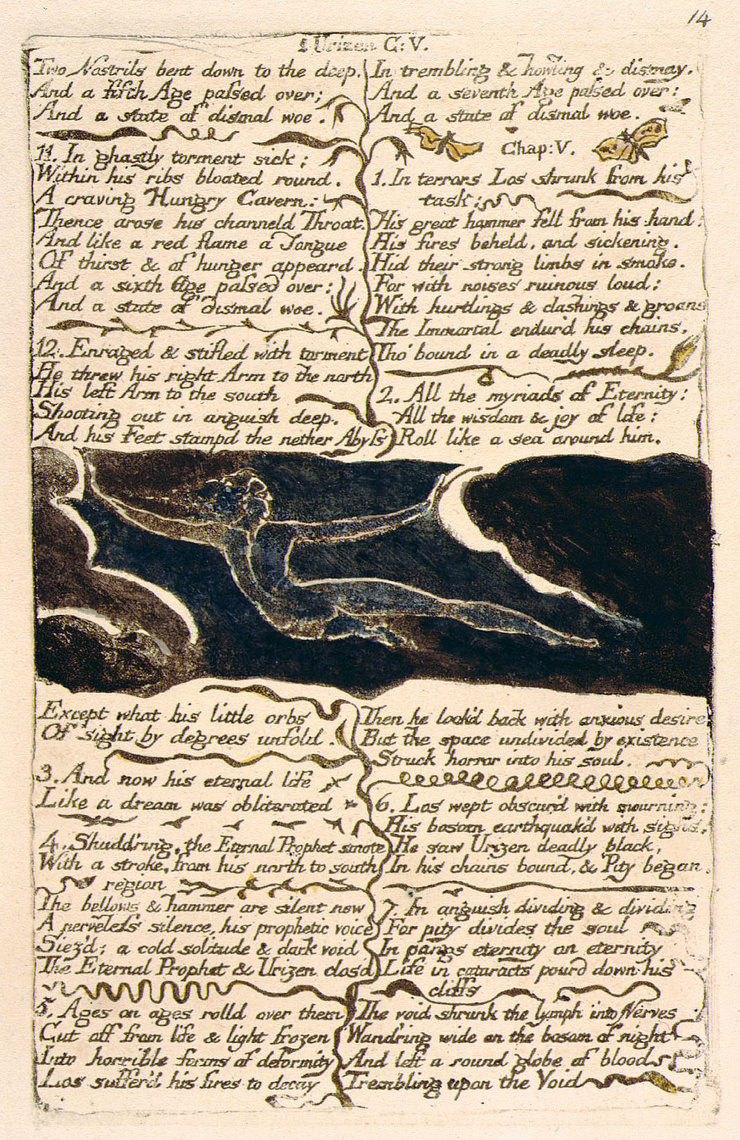 14
1 Urizen C: V.
Two Nostrils bent down to the deep.
And a fifth Age passed over;
And a state of dismal woe.
11. In ghastly torment sick;
Within his ribs bloated round.
A craving Hungry Cavern:
Thence arose his channeld Throat.
And like a red flame a Tongue
Of thirst & of hunger appeard.
And a sixth Age passed over:
And a state of dismal woe.
12. Enraged & stifled with torment
He threw his right Arm to the north
His left Arm to the south
Shooting out in anguish deep.
And his Feet stampd the nether Abyss
In trembling & howling & dismay.
And a seventh Age passed over:
And a state of dismal woe.
Chap: V.
1. In terrors Los shrunk from his
task:
His great hammer fell from his hand:
His fires beheld, and sickening.
Hid their strong limbs in smoke.
For with noises ruinous loud;
With hurtlings & clashings & groans
The Immortal endur'd his chains.
Tho' bound in a deadly sleep.
2. All the myriads of Eternity:
All the wisdom & joy of life:
Roll like a sea around him.
Except what his little orbs
Of sight by degrees unfold.
3. And now his eternal life
Like a dream was obliterated
4. Shudd'ring, the Eternal Prophet smote
With a stroke, from his north to south
region
The bellows & hammer are silent now
A nerveless silence, his prophetic voice
Siez'd; a cold solitude & dark void
The Eternal Prophet & Urizen clos'd
5. Ages on ages rolld over them
Cut off from life & light frozen
Into horrible forms of deformity
Los sufferd his fires to decay
Then he look'd back with anxious desire
But the space undivided by existence
Struck horror into his soul.
6. Los wept obscur'd with mourning:
His bosom earthquak'd with sighs;
He saw Urizen deadly black,
In his chains bound, & Pity began.
7. In anguish dividing & dividing
For pity divides the soul
In pangs eternity on eternity
Life in cataracts pourd down his
cliffs
The void shrunk the lymph into Nerves
Wand'ring wide on the bosom of night
And left a round globe of blood
Trembling upon the Void